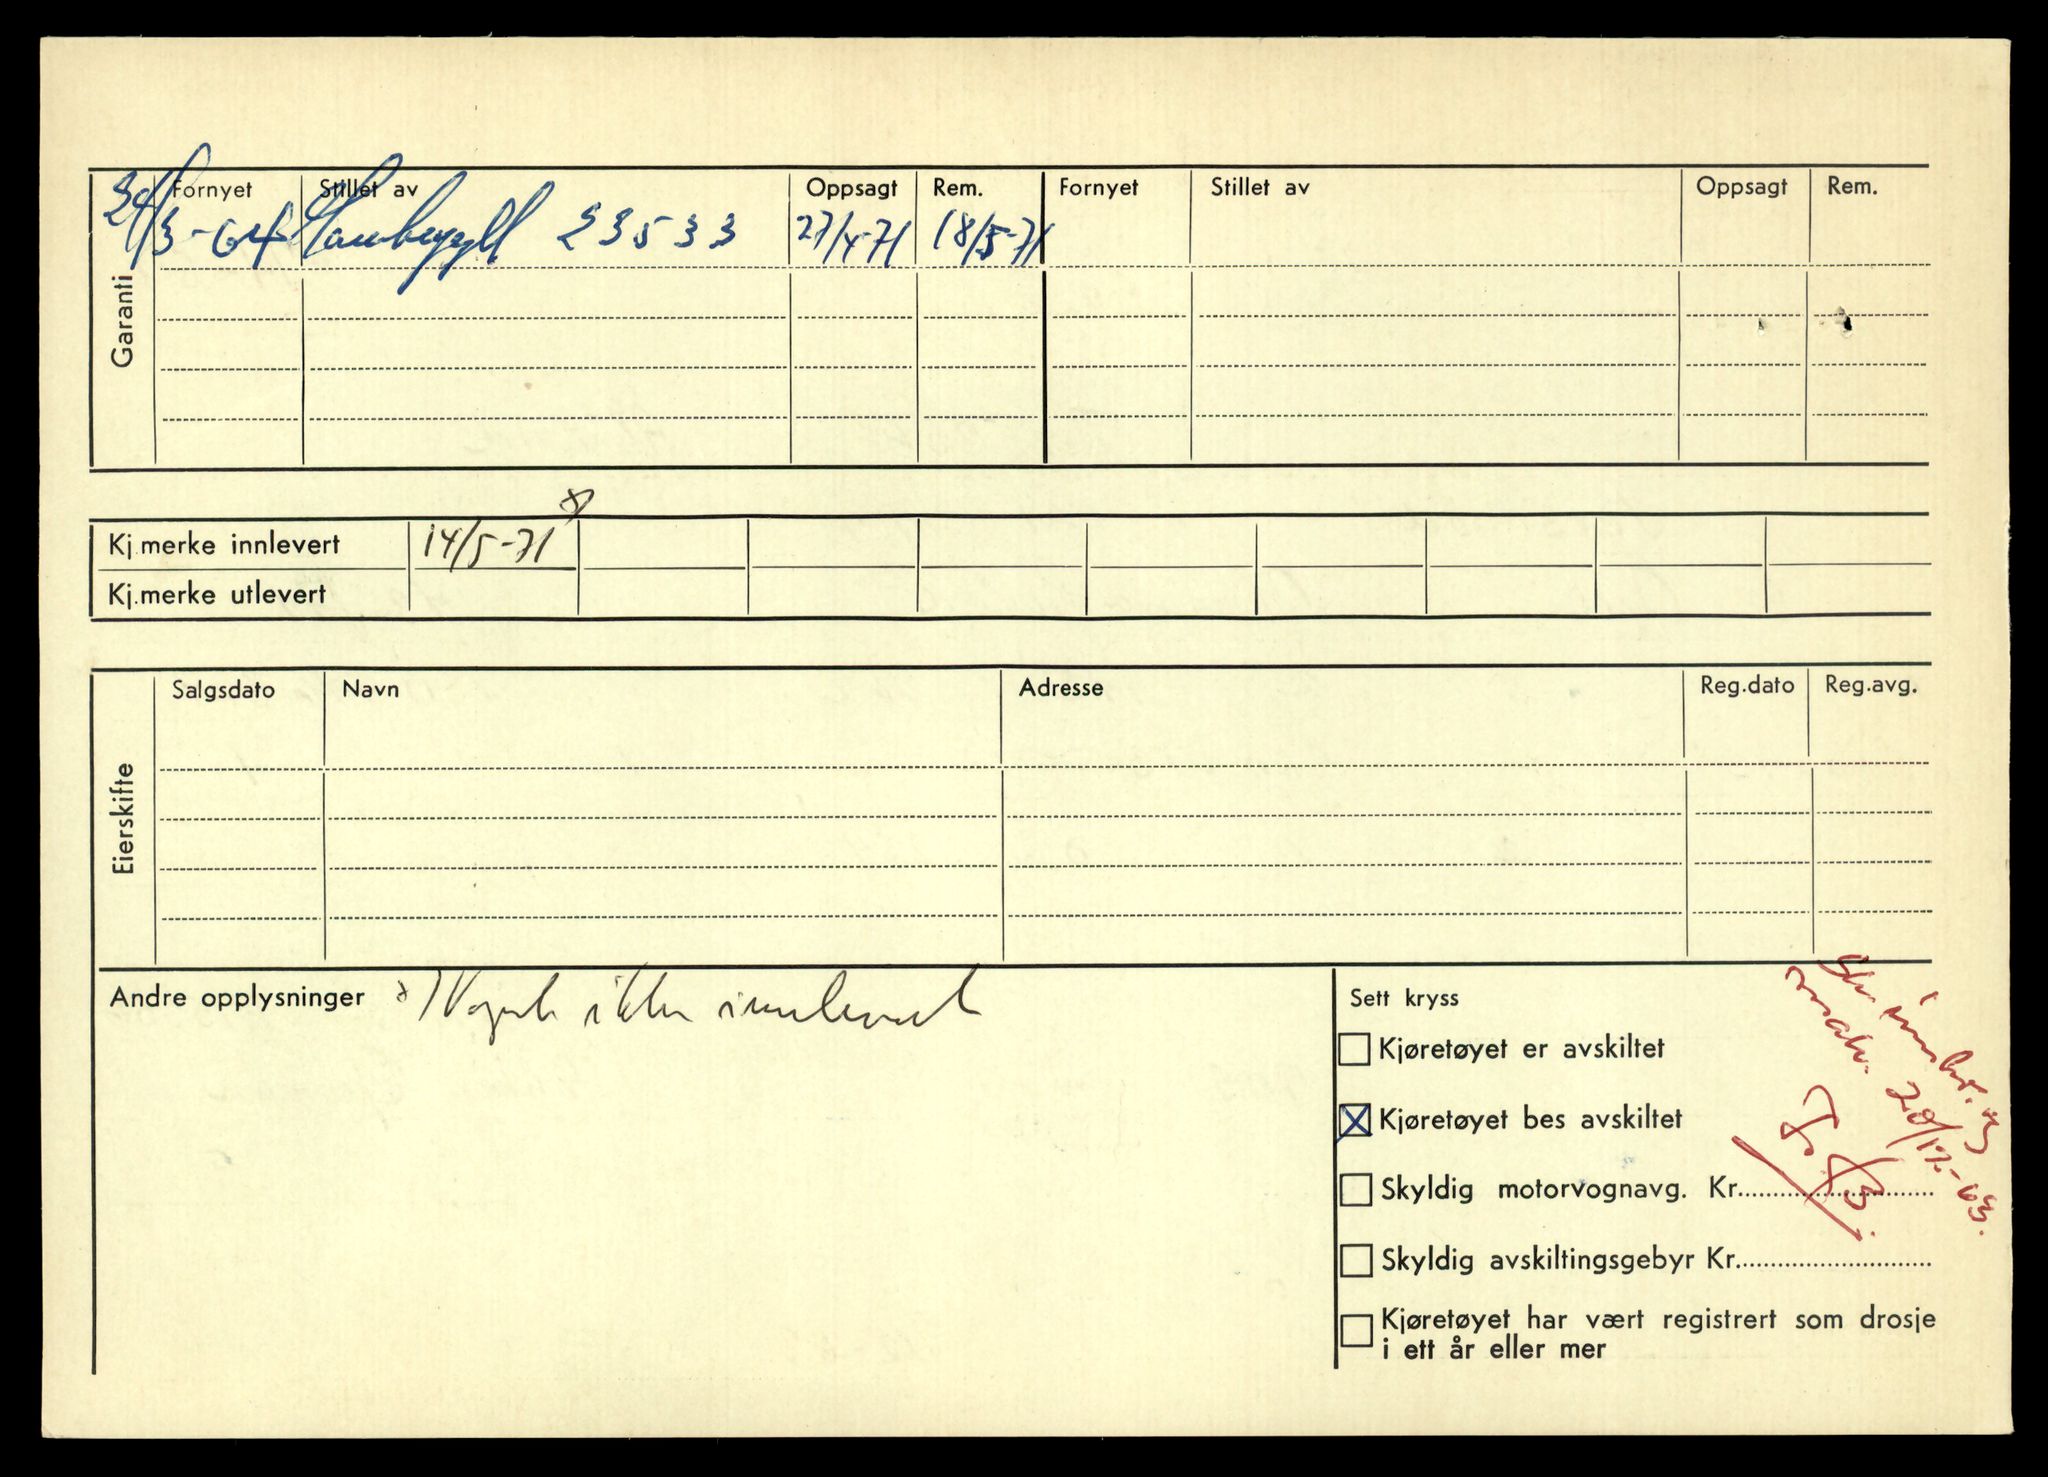 Garanti
Fornyet Stillet av Oppsagt Rem. Fornyet Stillet av Oppsagt Rem.
24/3-64 23533 27/4-71 18/5-71
Kj.merke innlevert 14/5-71 x)
Kj.merke utlevert
Eierskifte
Salgsdato Navn Adresse Reg.dato Reg.avg.
Andre opplysninger x) Vognk ikke innlevert
Sett kryss
Kjøretøyet er avskiltet
Kjøretøyet bes avskiltet
Skyldig motorvognavg. Kr.
Skyldig avskiltingsgebyr Kr.
Kjøretøyet har vært registrert som drosje
i ett år eller mer
20/12-63.